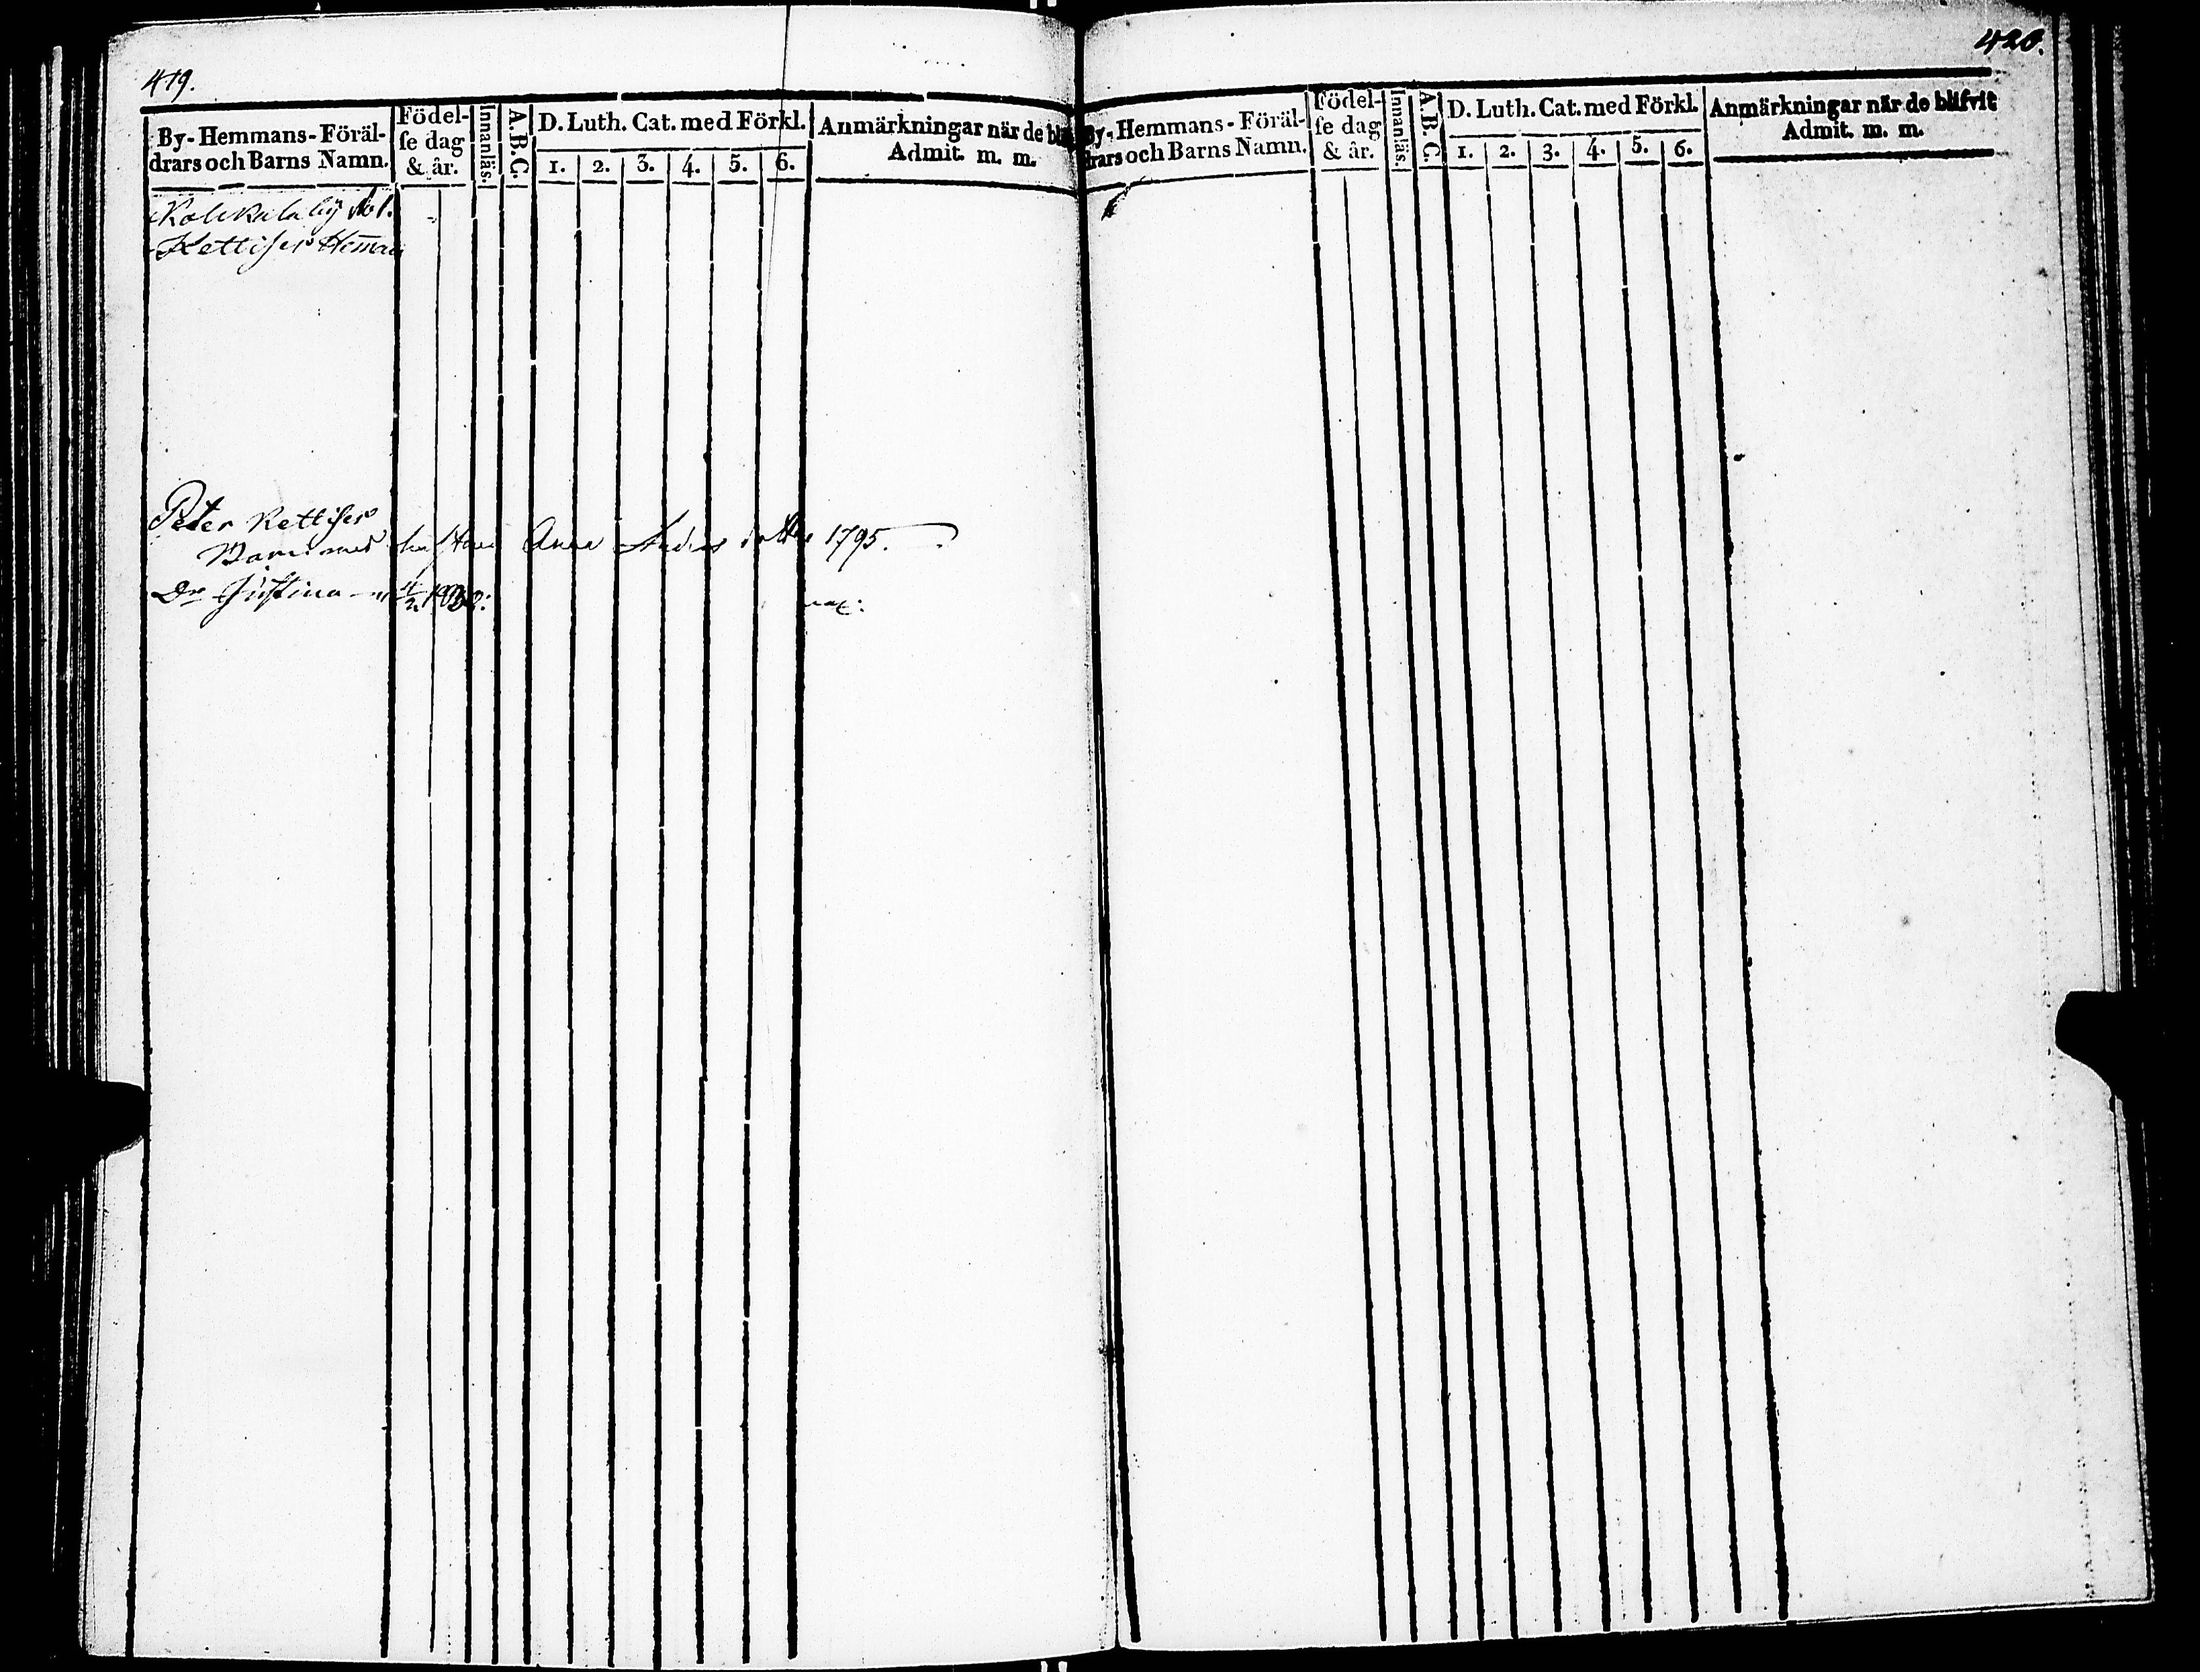 419.
By- Hemmans- Föräl-
drars och Barns Namn.
Födel-
se dag
& år.
Innanläs.
A.B.C.
D. Luth. Cat. med Förkl.
1. 2. 3. 4. 5. 6.
Anmärkningar när de blif
Admit. m. m.
Kolukulaby No 1.
Kettiser Heman
Peter Kettisers
Barn med hustrun Anna Anders dotter 1795.
Dr Justina
420.
By- Hemmans- Föräl-
drars och Barns Namn.
Födel-
se dag
& år.
Innanläs.
A.B.C.
D. Luth. Cat. med Förkl.
1. 2. 3. 4. 5. 6.
Anmärkningar när de blifvit
Admit. m. m.